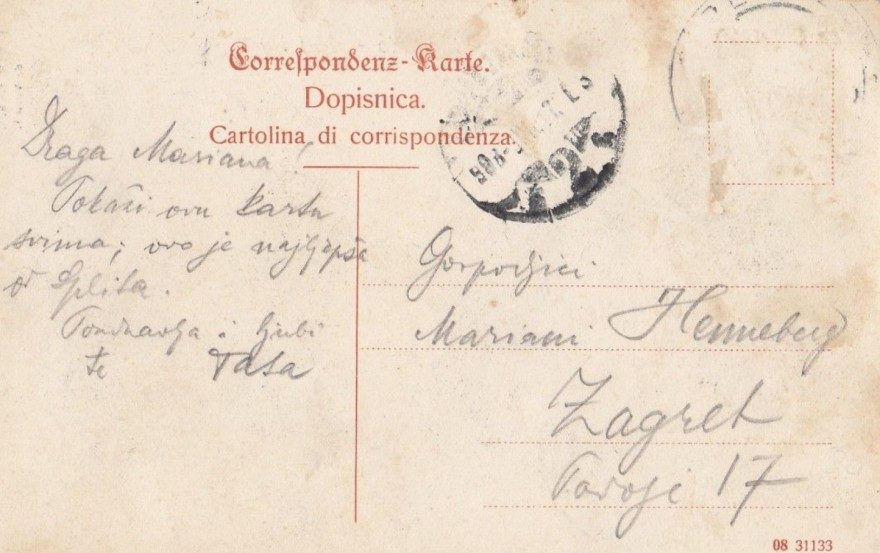 Correspondenz-Karte.
Dopisnica.
Cartolina di corrispondenza.
Draga Mariana!
Pokaži ovu kartu
svima; ovo je najljepše
od Splita.
Pozdravlja i ljubi
te Tata
Gospodjici
Mariani Henneberg
Zagreb
17
08 31133